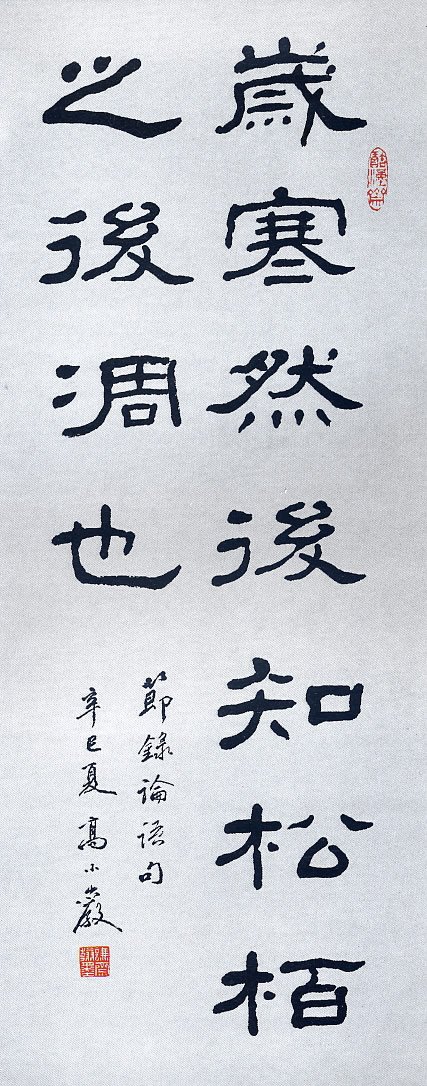 歲寒然後知松栢
之後凋也
節錄論語句
辛巳夏高小巖